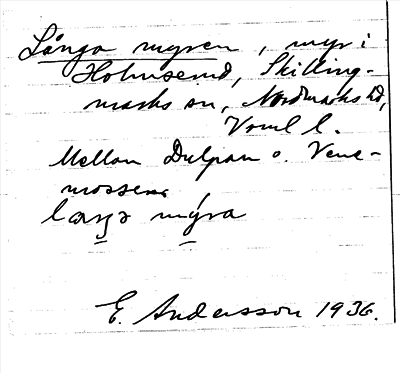 Långa myren, myr i
Holmserud, Skilling-
marks sn, Nordmarks hd,
Vrml l.
Mellan Dulpan o. Vene-
mossen.
laŋa mýra
E. Andersson 1936.